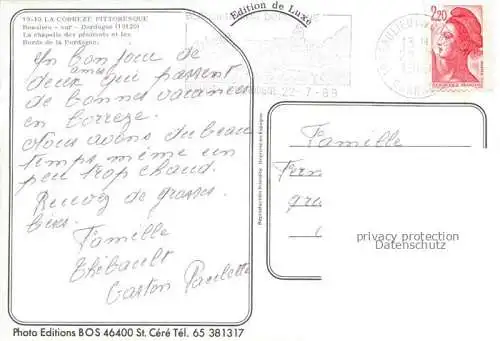 19-19 LA CORREZE PITTORESQUE
Beaulieu - sur - Dordogne (19120)
La chapelle des pénitents et les
Bords de la Dordogne.
Edition de Luxe
22-7-89
2,20
Un bon jour de
deux amis qui passent
de bonnes vacances
en Corrèze.
Nous avons du beau
temps même un
peu trop chaud.
Recevez de grosses
bises.
Famille
Thibault
Gaston Paulette
Famille
privacy protection
Datenschutz
Photo Editions BOS 46400 St. Céré Tél. 65 381317